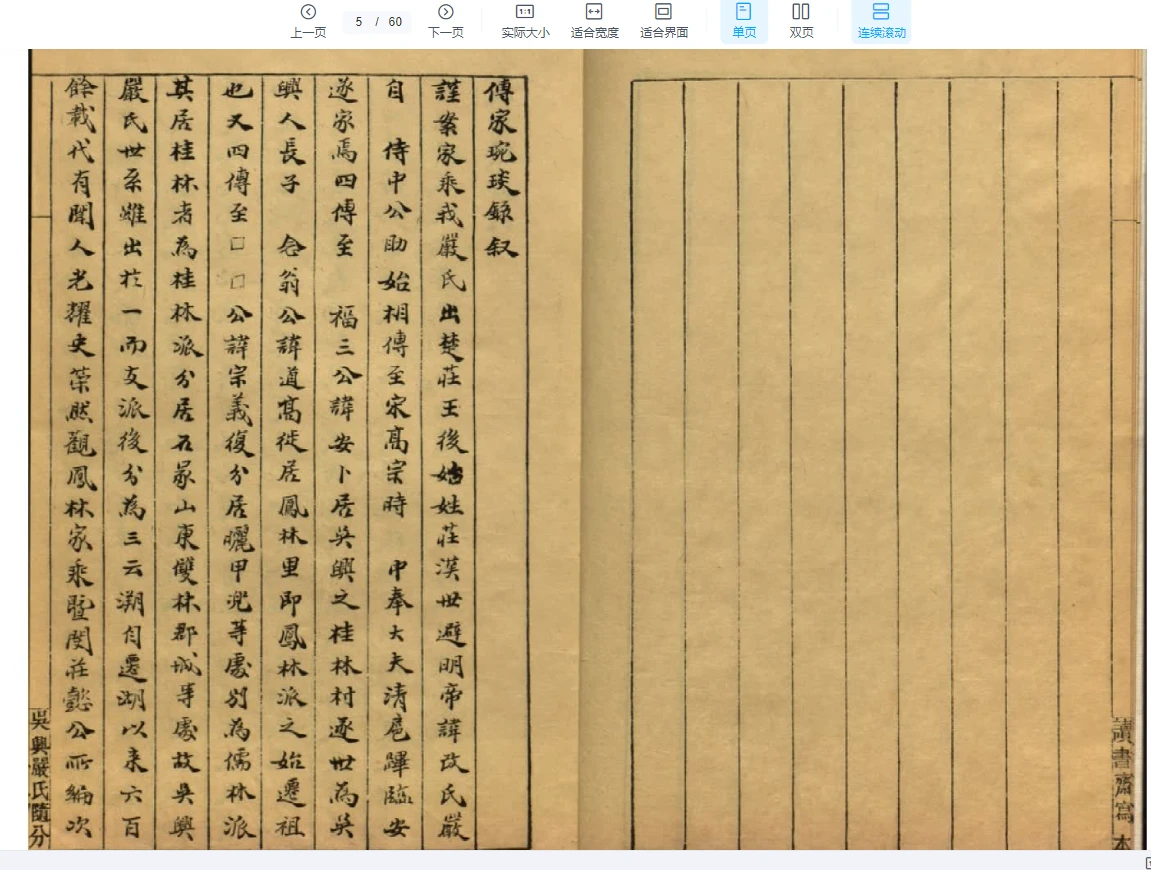 上一页
5 / 60
下一页
1:1
实际大小
适合宽度
适合界面
单页
双页
连续滚动
傳家琬琰錄叙
謹案家乘我嚴氏出楚莊王後始姓莊漢世避明帝諱改氏嚴
自 侍中公助始相傳至宋高宗時 中奉大夫清扈蹕臨安
遂家焉四傳至 福三公諱安卜居吳興之桂林村遂世為吳
興人長子 念翁公諱道高徙居鳳林里即鳳林派之始遷祖
也又四傳至□□公諱宗義復分居曬甲兜等處別為儒林派
其居桂林者為桂林派分居石冢山東雙林郡城等處故吳興
嚴氏世系雖出於一而支派後分為三云溯自遷湖以来六百
餘載代有聞人老耀史榮然觀鳳林家乘暨閔莊懿公所編次
吳興嚴氏隨分
讀書齋寫本